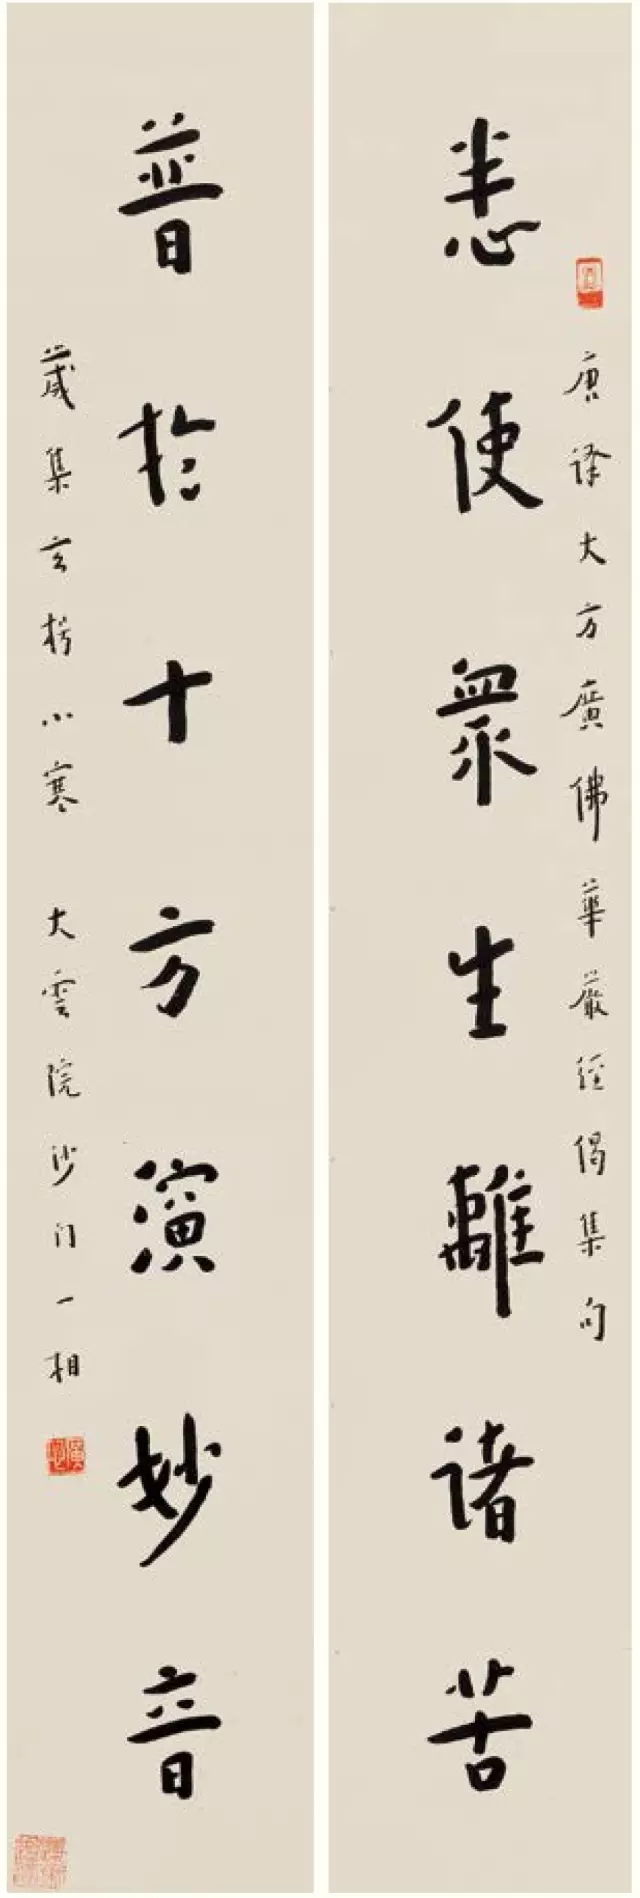 唐译大方廣佛華嚴經偈集句
悉使眾生離諸苦
普於十方演妙音
歲集玄枵小寒 大雲院沙门一相